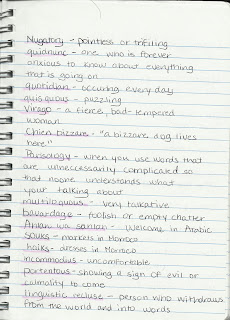 Nugatory - pointless or trifiling
quidnunc - one who is forever
anxious to know about everything
that is going on
quotidian - occuring every day
quisquous - puzzling
Virago - a fierce, bad-tempered
woman
Chien bizzare - "a bizzare dog lives
here"
Parisology - when you use words that
are unneccessarily complicated so
that noone understands what
your talking about
multiloquous - very talkative
bavardage - foolish or empty chatter
Ahlan wa sahlan - welcome in Arabic
Souks - markets in Morroco
haiks - dresses in Morroco
incommodius - uncomfortable
portentous - showing a sign of evil or
calmality to come
linguistic recluse - person who withdraws
from the world and into words